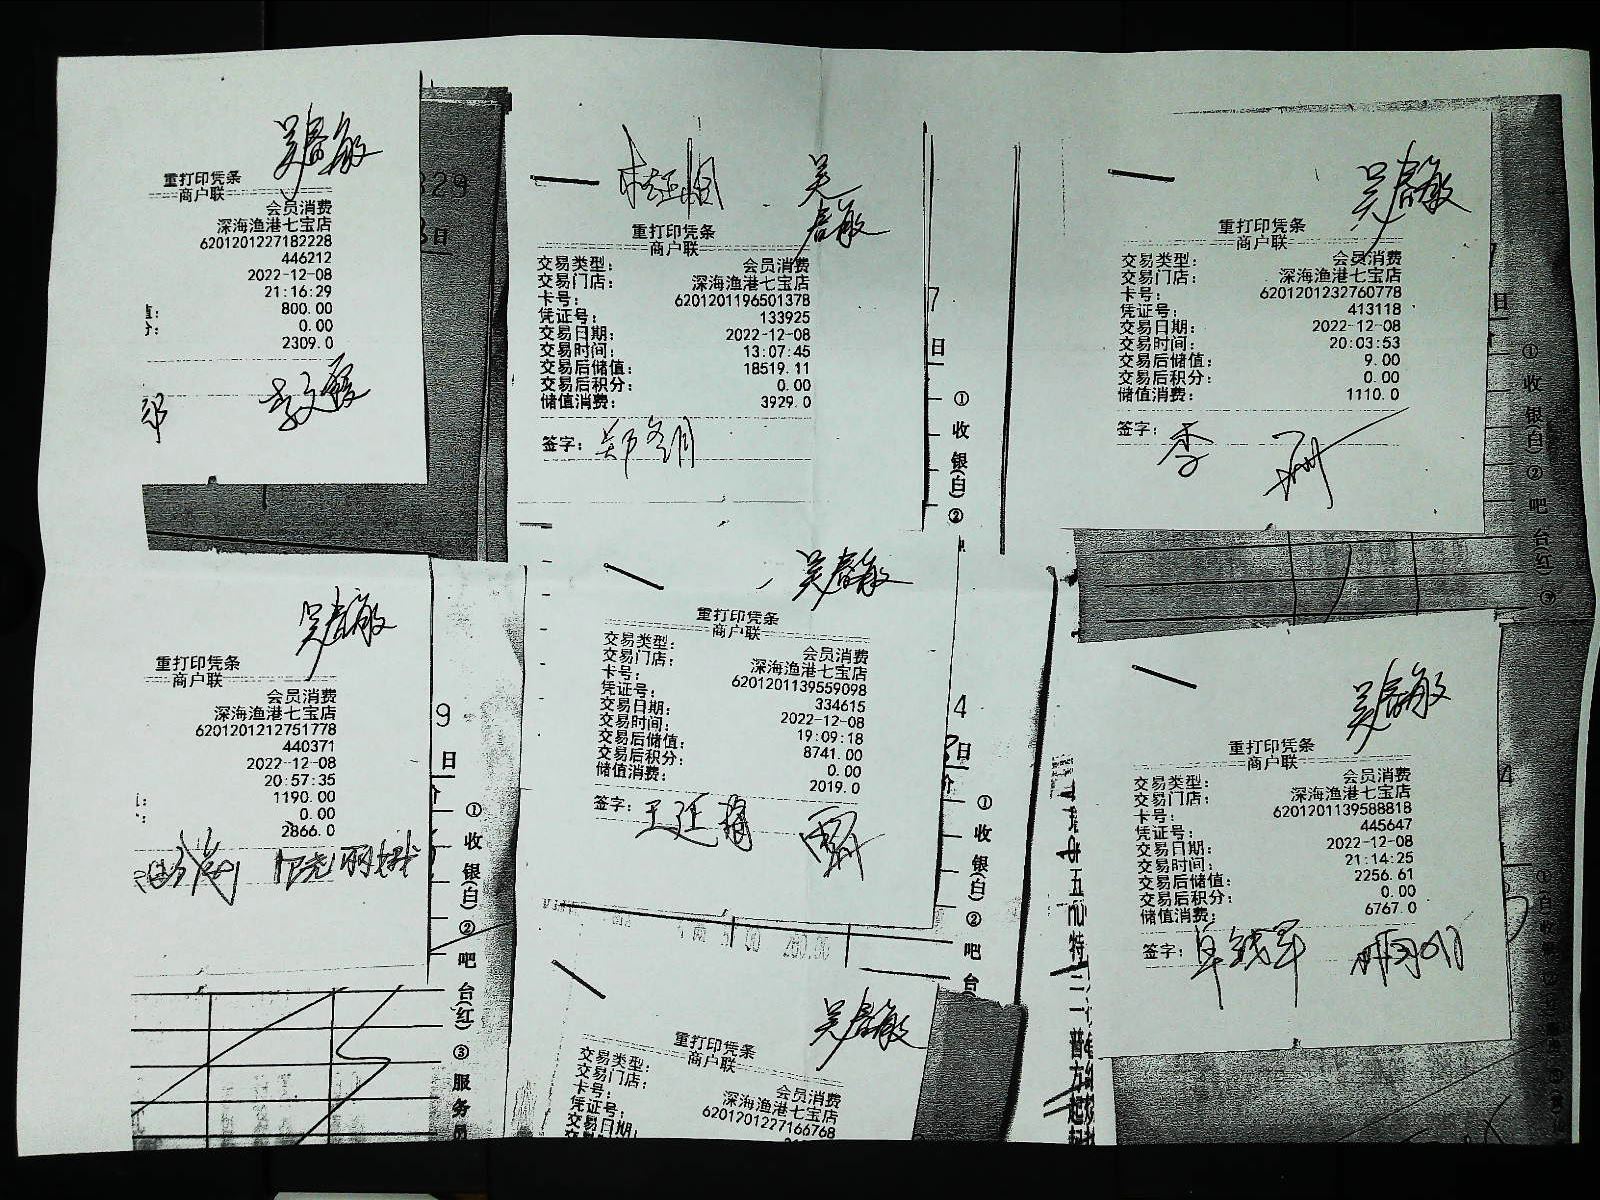 吴春敏
重打印凭条
商户联
会员消费
深海渔港七宝店
6201201227182228
446212
2022-12-08
21:16:29
800.00
0.00
2309.0
829
日
吴春敏
重打印凭条
商户联
交易类型: 会员消费
交易门店: 深海渔港七宝店
卡号: 6201201196501378
凭证号: 133925
交易日期: 2022-12-08
交易时间: 13:07:45
交易后储值: 18519.11
交易后积分: 0.00
储值消费: 3929.0
签字:
7
日
①收银(白)②
吴春敏
重打印凭条
商户联
交易类型: 会员消费
交易门店: 深海渔港七宝店
卡号: 6201201232760778
凭证号: 413118
交易日期: 2022-12-08
交易时间: 20:03:53
交易后储值: 9.00
交易后积分: 0.00
储值消费: 1110.0
签字: 李
日
①收银(白)②吧台(红)
吴春敏
重打印凭条
商户联
会员消费
深海渔港七宝店
6201201212751778
440371
2022-12-08
20:57:35
1190.00
0.00
2866.0
9
日
①收银(白)②吧台(红)③服务
吴春敏
重打印凭条
商户联
交易类型: 会员消费
交易门店: 深海渔港七宝店
卡号: 6201201139559098
凭证号: 334615
交易日期: 2022-12-08
交易时间: 19:09:18
交易后储值: 8741.00
交易后积分: 0.00
储值消费: 2019.0
签字: 王廷
4
日
①收银(白)②吧台
吴春敏
重打印凭条
商户联
交易类型: 会员消费
交易门店: 深海渔港七宝店
卡号: 6201201139588818
凭证号: 445647
交易日期: 2022-12-08
交易时间: 21:14:25
交易后储值: 2256.61
交易后积分: 0.00
储值消费: 6767.0
签字:
4
吴春敏
重打印凭条
商户联
交易类型: 会员消费
交易门店: 深海渔港七宝店
卡号: 6201201227166768
凭证号:
交易日期: